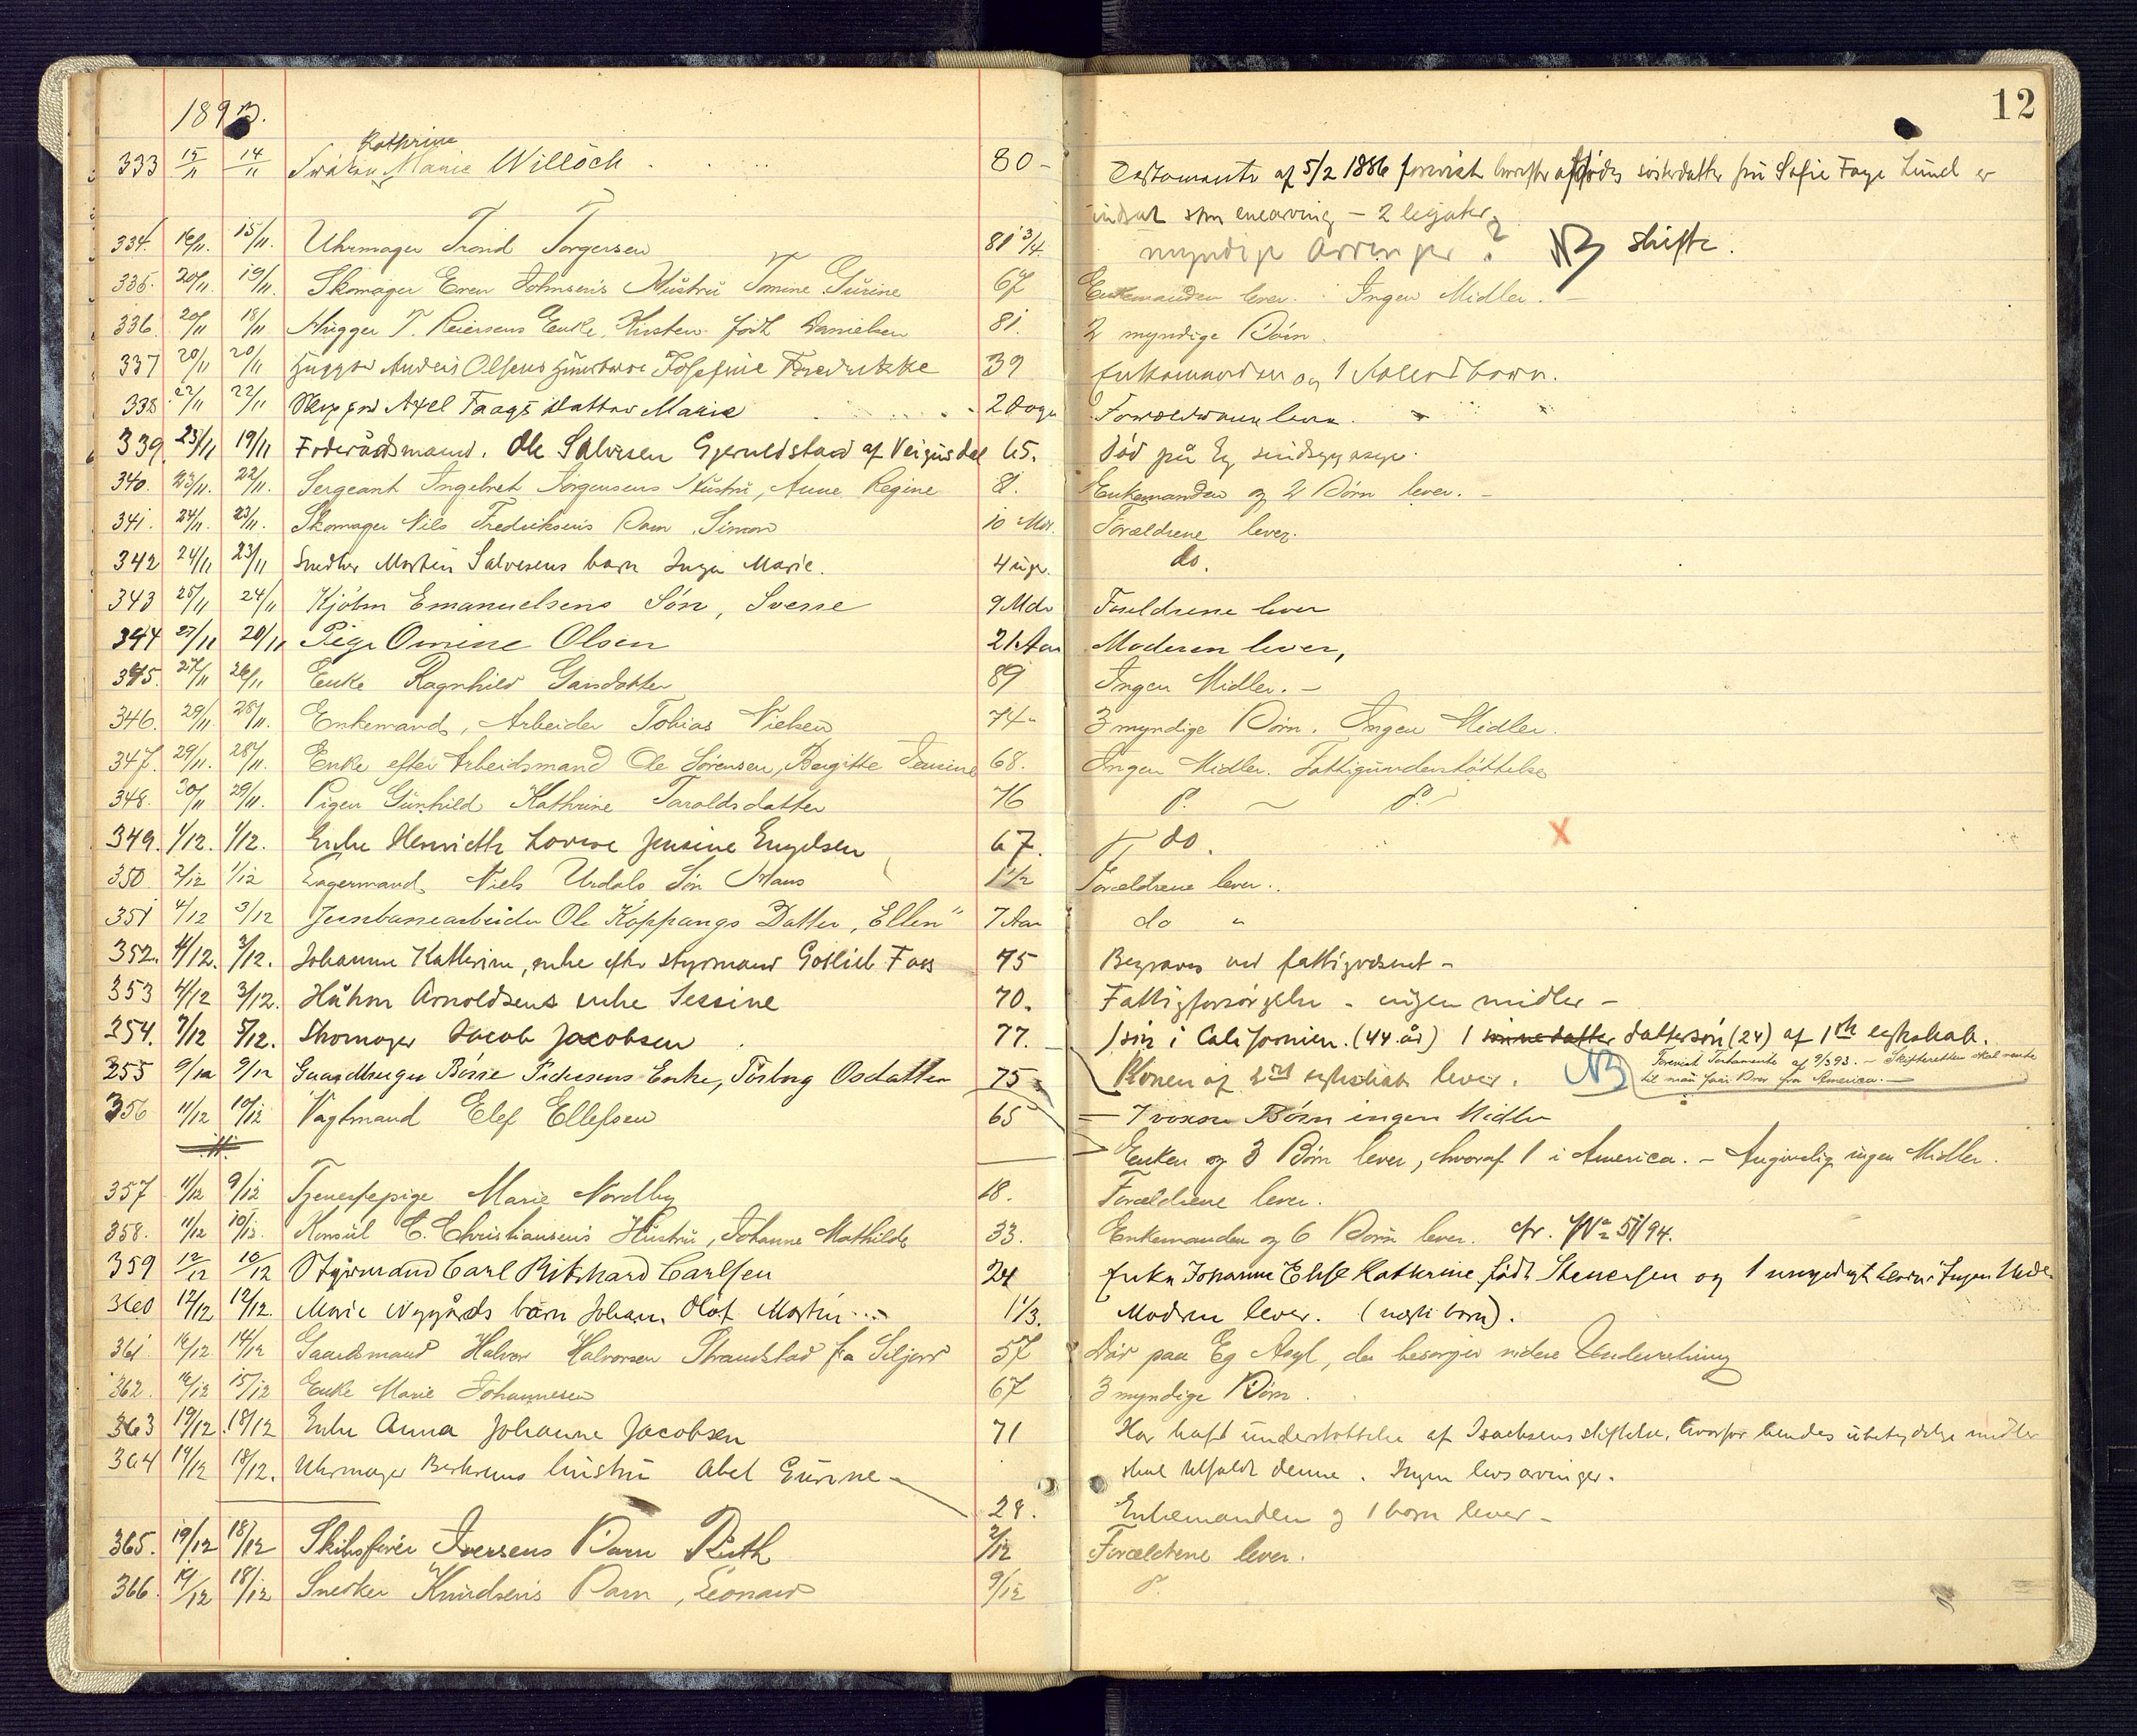 12
1893.
Kathrine
333 15/11 14/11 Frøken Marie Willoch 80 Testamente af 5/2 1886 forevist hvorefter afdødes søsterdatter frü Sofie Faye Lund er
indsat som enearving – 2 legater
334. 16/11. 15/11. Uhrmager Trond Torgersen 81 3/4 myndige Arvinger? NB skifte.
335. 20/11. 19/11. Skomager Even Johnsens Hüstrü Tomine Gurine 67 Enkemanden lever. Ingen Midler. –
336. 20/11 18/11 Hugger T. Reiersens Enke, Kirsten født Danielsen 81. 2 myndige Børn.
337 20/11 20/11 Hugger Anders Olsens Hüstrue Josefine Fredrikke 39 Enkemanden og 1 barn.
338 22/11 22/11 Axel Faags datter Marie 2 Dage Forældrene lever.
339. 23/11 19/11 Føderådsmand. Ole Salvesen Gjeruldstad af Veigusdal 65. Død på Eg sindsygeasyl.
340. 23/11. 22/11. Sergeant Ingebret Jørgensens Hüstrü, Anne Regine 81. Enkemanden og 2 Børn lever. –
341. 24/11. 23/11. Skomager Nils Fredriksens Barn Simon 10 Mdr. Forældrene lever.
342 24/11 23/11 Snedker Martin Salvesens barn Inga Marie. 4 uger. do.
343 25/11 24/11 Kjøbm Emanuelsens Søn, Sverre 9 Mdr Foreldrene lever
344 27/11 20/11 Pige Omine Olsen 21 Aar Moderen lever,
345. 27/11 26/11 Enke Ragnhild Gansdatter 89 Ingen Midler. –
346. 29/11. 28/11. Enkemand, Arbeider Tobias Nielsen 74 3 myndige Børn. Ingen Midler.
347. 29/11. 28/11. Enke efter Arbeidsmand Ole Sørensen, Bergitte Tensine 68. Ingen Midler. Fattigunderstøttelse
348. 30/11 29/11. Pigen Günhild Kathrine Taraldsdatter 76 d. ~ d. ~
349. 1/12. 1/12. Enke Henriette Lovise Jensine Engelsen 67. do. X
350 2/12 1/12 Lagermand Niels Urdals Søn Hans 1 1/2 Forældrene lever.
351 4/12 3/12 Jernbanearbeider Ole Koppangs Datter, "Ellen" 7 Aar do "
352. 4/12. 3/12. Johanne Kathrine, enke efter styrmand Gotlieb Foss 75 Begraves ved fattigvæsenet –
353 4/12 3/12. Håkon Arnoldsens enke Sessine 70. Fattigforsørgelse – ingen midler –
354. 7/12 5/12. Skomager Jacob Jacobsen 77. 1 søn i Californien. (44 år) 1 sønnedatter dattersøn (24) af 1ste egteskab.
Konen af 2det egteskab lever. NB Forevist Testamente af 9/3 93. – Skifteretten skal vente
til man faar Brev fra America. –
355 9/12 9/12 Gaardbruger Børre Pedersens Enke, Torborg Osdatter 75 – 7 voxne Børn ingen Midler
356 11/12 10/12 Vagtmand Elef Ellefsen 65 Enken og 3 Børn lever, hvoraf 1 i America. – Angivelig ingen Midler.
357 11/12 9/12 Tjenestepige Marie Nordby 18. Forældrene lever.
358. 11/12 10/12. Konsül C. Christiansens Hüstrü, Johanne Mathilde 33. Enkemanden og 6 Børn lever. cfr. No 51/94.
359 12/12 10/12 Styrmand Carl Rikhard Carlsen 24 Enke Johanne Elise Kathrine født Stenersen og 1 umyndigt barn. Ingen Midler
360 12/12 12/12. Marie Nygårds barn Johan Olaf Martin 1 1/3. Modren lever. (uægte barn).
361 16/12. 14/12 Gaardmand Halvor Halvorsen Strandstad fra Siljord 57 Død paa Eg Asyl, der besørger videre Underretning
362. 16/12 15/12 Enke Marie Johannesen 67 3 myndige Børn.
363 19/12. 18/12 Enke Anna Johanne Jacobsen 71 Har haft understøttelse af Isachsens stiftelse, hvorfor hendes übetydelige midler
skal tilfalde denne. Ingen livsarvinger.
364 19/12 18/12. Uhrmager Bertrums hüstrü Abel Gurine – 28. Enkemanden og 1 barn lever –
365. 19/12 18/12 Skibsfører Iversens Barn Ruth 2/12 Forældrene lever.
366. 19/12 18/12 Snedker Knüdsens Barn, Leonard 9/12 d.